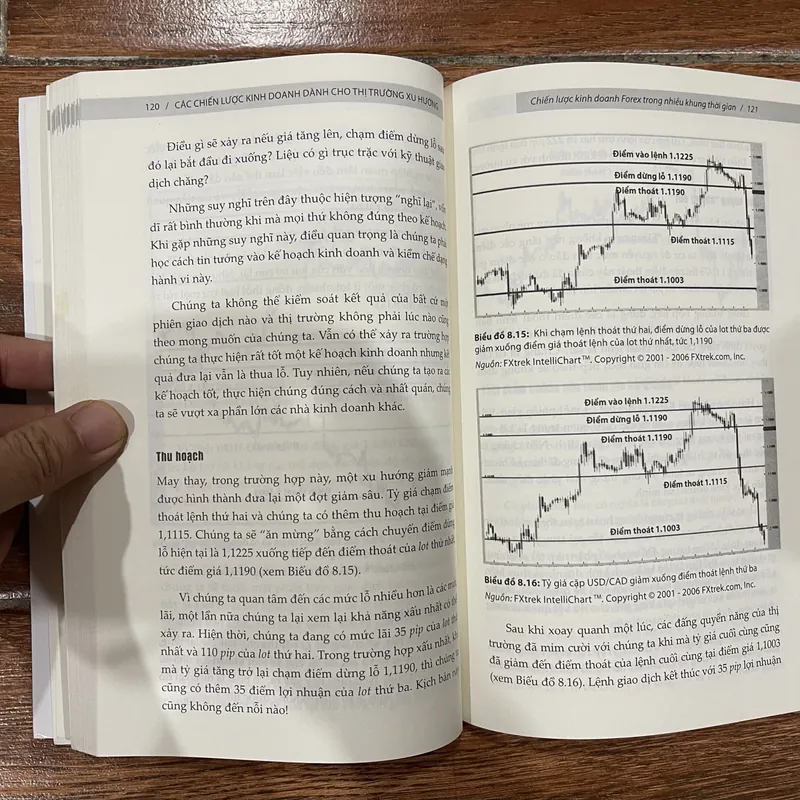 120 / CÁC CHIẾN LƯỢC KINH DOANH DÀNH CHO THỊ TRƯỜNG XU HƯỚNG
Điều gì sẽ xảy ra nếu giá tăng lên, chạm điểm dừng lỗ sau
đó lại bắt đầu đi xuống? Liệu có gì trục trặc với kỹ thuật giao
dịch chăng?
Những suy nghĩ trên đây thuộc hiện tượng "nghĩ lại", vốn
dĩ rất bình thường khi mà mọi thứ không đúng theo kế hoạch.
Khi gặp những suy nghĩ này, điều quan trọng là chúng ta phải
học cách tin tưởng vào kế hoạch kinh doanh và kiềm chế dạng
hành vi này.
Chúng ta không thể kiểm soát kết quả của bất cứ một
phiên giao dịch nào và thị trường không phải lúc nào cũng
theo mong muốn của chúng ta. Vẫn có thể xảy ra trường hợp
chúng ta thực hiện rất tốt một kế hoạch kinh doanh nhưng kết
quả đưa lại vẫn là thua lỗ. Tuy nhiên, nếu chúng ta tạo ra các
kế hoạch tốt, thực hiện chúng đúng cách và nhất quán, chúng
ta sẽ vượt xa phần lớn các nhà kinh doanh khác.
Thu hoạch
May thay, trong trường hợp này, một xu hướng giảm mạnh
được hình thành đưa lại một đợt giảm sâu. Tỷ giá chạm điểm
thoát lệnh thứ hai và chúng ta có thêm thu hoạch tại điểm giá
1,1115. Chúng ta sẽ "ăn mừng" bằng cách chuyển điểm dừng
lỗ hiện tại là 1,1225 xuống tiếp đến điểm thoát của lot thứ nhất,
tức điểm giá 1,1190 (xem Biểu đồ 8.15).
Vì chúng ta quan tâm đến các mức lỗ nhiều hơn là các mức
lãi, một lần nữa chúng ta lại xem lại khả năng xấu nhất có thể
xảy ra. Hiện thời, chúng ta đang có mức lãi 35 pip của lot thứ
nhất và 110 pip của lot thứ hai. Trong trường hợp xấu nhất, khi
mà tỷ giá tăng trở lại chạm điểm dừng lỗ 1,1190, thì chúng ta
cũng có thêm 35 điểm lợi nhuận của lot thứ ba. Kịch bản này
cũng không đến nỗi nào!
Chiến lược kinh doanh Forex trong nhiều khung thời gian / 121
Điểm vào lệnh 1.1225
Điểm dừng lỗ 1.1190
Điểm thoát 1.1190
Điểm thoát 1.1115
Điểm thoát 1.1003
Biểu đồ 8.15: Khi chạm lệnh thoát thứ hai, điểm dừng lỗ của lot thứ ba được
giảm xuống điểm giá thoát lệnh của lot thứ nhất, tức 1,1190
Nguồn: FXtrek IntelliChart™. Copyright © 2001 - 2006 FXtrek.com, Inc.
Điểm vào lệnh 1.1225
Điểm dừng lỗ 1.1190
Điểm thoát 1.1190
Điểm thoát 1.1115
Điểm thoát 1.1003
Biểu đồ 8.16: Tỷ giá cặp USD/CAD giảm xuống điểm thoát lệnh thứ ba
Nguồn: FXtrek IntelliChart™. Copyright © 2001 - 2006 FXtrek.com, Inc.
Sau khi xoay quanh một lúc, các đấng quyền năng của thị
trường đã mỉm cười với chúng ta khi mà tỷ giá cuối cùng cũng
đã giảm đến điểm thoát của lệnh cuối cùng tại điểm giá 1,1003
(xem Biểu đồ 8.16). Lệnh giao dịch kết thúc với 35 pip lợi nhuận